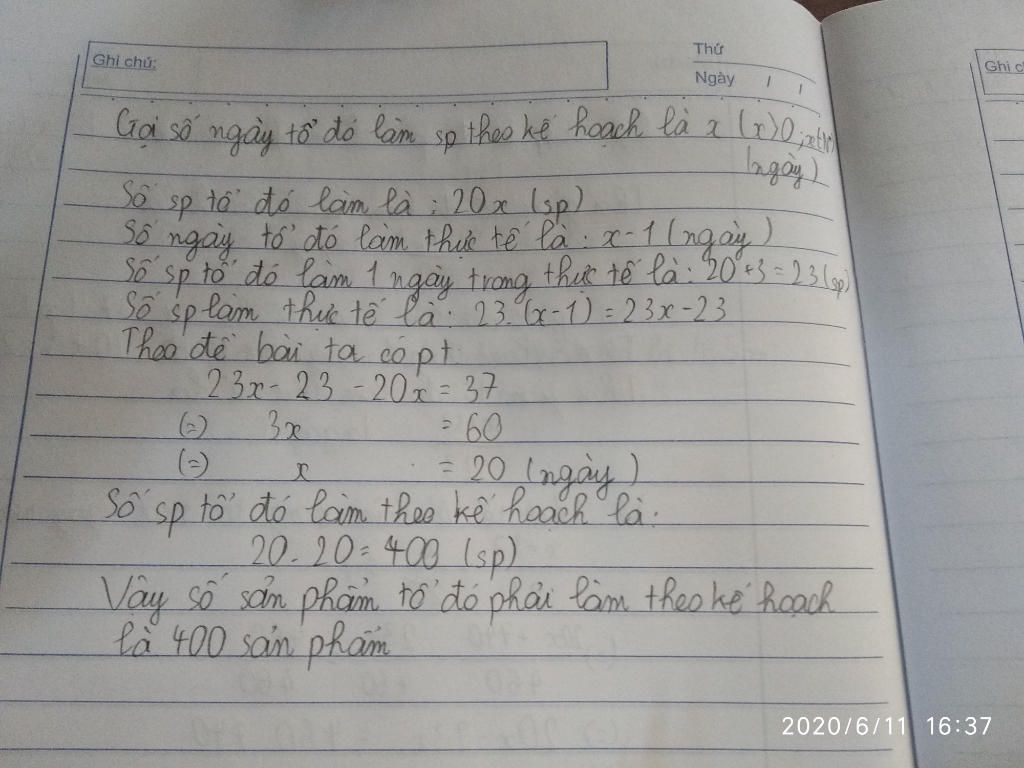 Ghi chú:
Thứ
Ngày / /
Ghi c
Gọi số ngày tổ đó làm sp theo kế hoạch là x (x>0, x∈N*)
(ngày)
Số sp tổ đó làm là : 20x (sp)
Số ngày tổ đó làm thực tế là : x-1 (ngày)
Số sp tổ đó làm 1 ngày trong thực tế là: 20+3=23 (sp)
Số sp làm thực tế là: 23.(x-1) = 23x-23
Theo đề bài ta có pt
23x - 23 - 20x = 37
(=) 3x = 60
(=) x = 20 (ngày)
Số sp tổ đó làm theo kế hoạch là:
20.20 = 400 (sp)
Vây số sản phẩm tổ đó phải làm theo kế hoạch
là 400 sản phẩm
2020/6/11 16:37